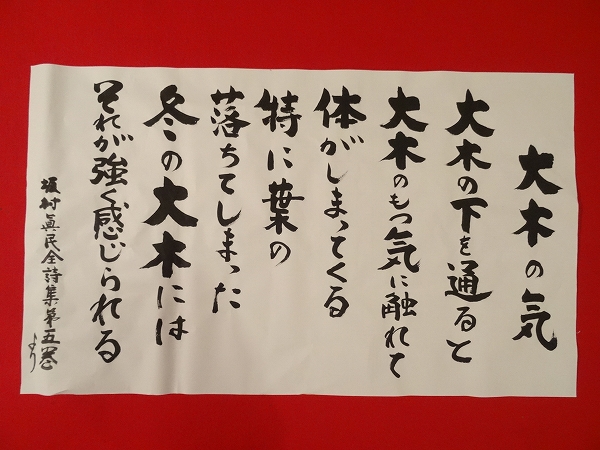 大木の気
大木の下を通ると
大木のもつ気に触れて
体がしまってくる
特に葉の
落ちてしまった
冬の大木には
それが強く感じられる
坂村眞民全詩集第五巻より